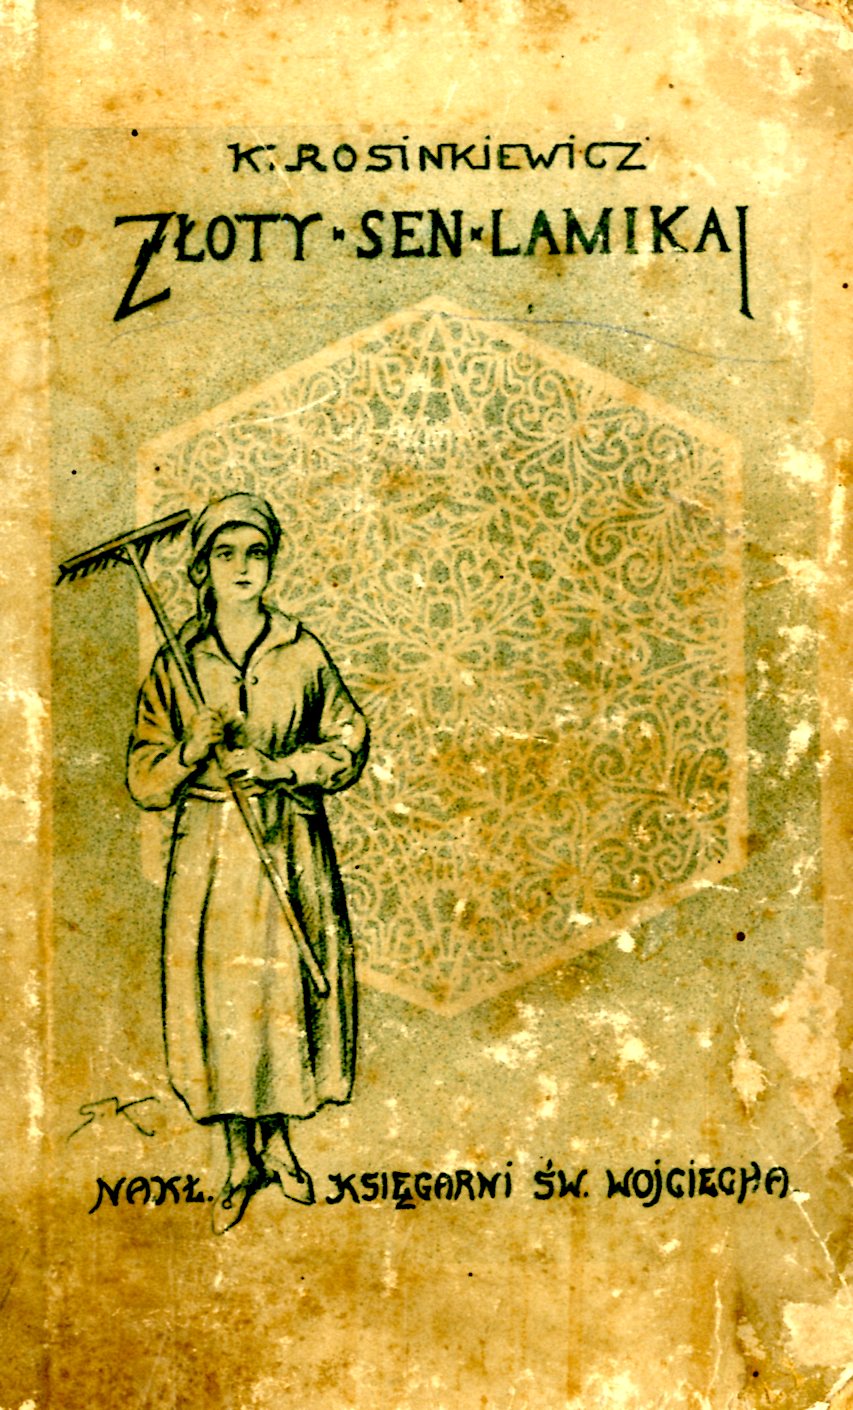 K. ROSINKIEWICZ
ZŁOTY SEN LAMIKAI
S.K
NAKŁ. KSIĘGARNI ŚW. WOJCIECHA